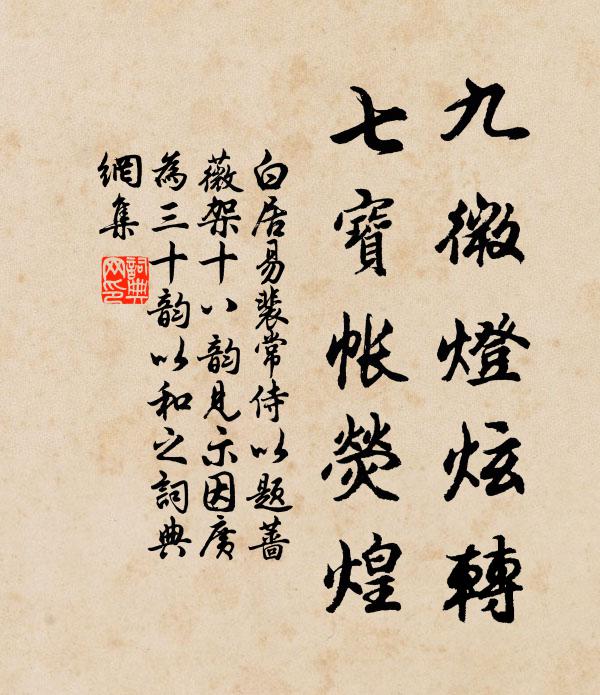 九微燈炫轉
七寶帳熒煌
白居易裴常侍以題薔
薇架十八韵見示因廣
為三十韵以和之詞典
網集
詞典
网印